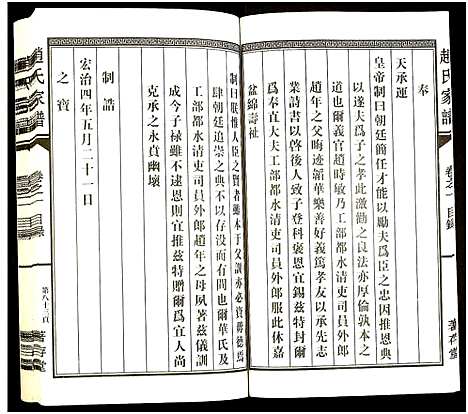 趙氏家譜
卷之一 目錄
蓍存堂
奉
天承運
皇帝制曰朝廷簡任才能以勵夫為臣之忠因推恩典
以遂夫為子之孝此激勸之良法亦厚倫敦本之
道也爾義官趙時敏乃工部都水清吏司員外郎
趙年之父晦迹韜華樂善好義篤孝友以承先志
業詩書以啓後人致子登科褒恩宜錫茲特封
為奉直大夫工部都水清吏司員外郎服此休嘉
益綿壽祉
制曰朕惟人臣之賢者雖本于父訓亦必資母德焉
肆朝廷追崇之典不以存没而有間也爾華氏及
工部都水清吏司員外郎趙年之母夙著茲儀訓
成今子祿雖不逮恩則宜推茲特贈爾為宜人尚
克承之永賁幽壤
制誥
宏治四年五月二十一日
之寶
趙氏家譜
卷之一 目錄
第八十三頁
蓍存堂